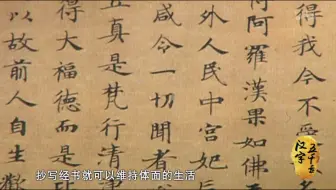 得我今不
得阿羅漢果如佛
外人民中宮妃后
咸令一切聞者
真是梵行清淨
得大福德而是
以故前人自生歡
汉字五千年
抄写经书就可以维持体面的生活